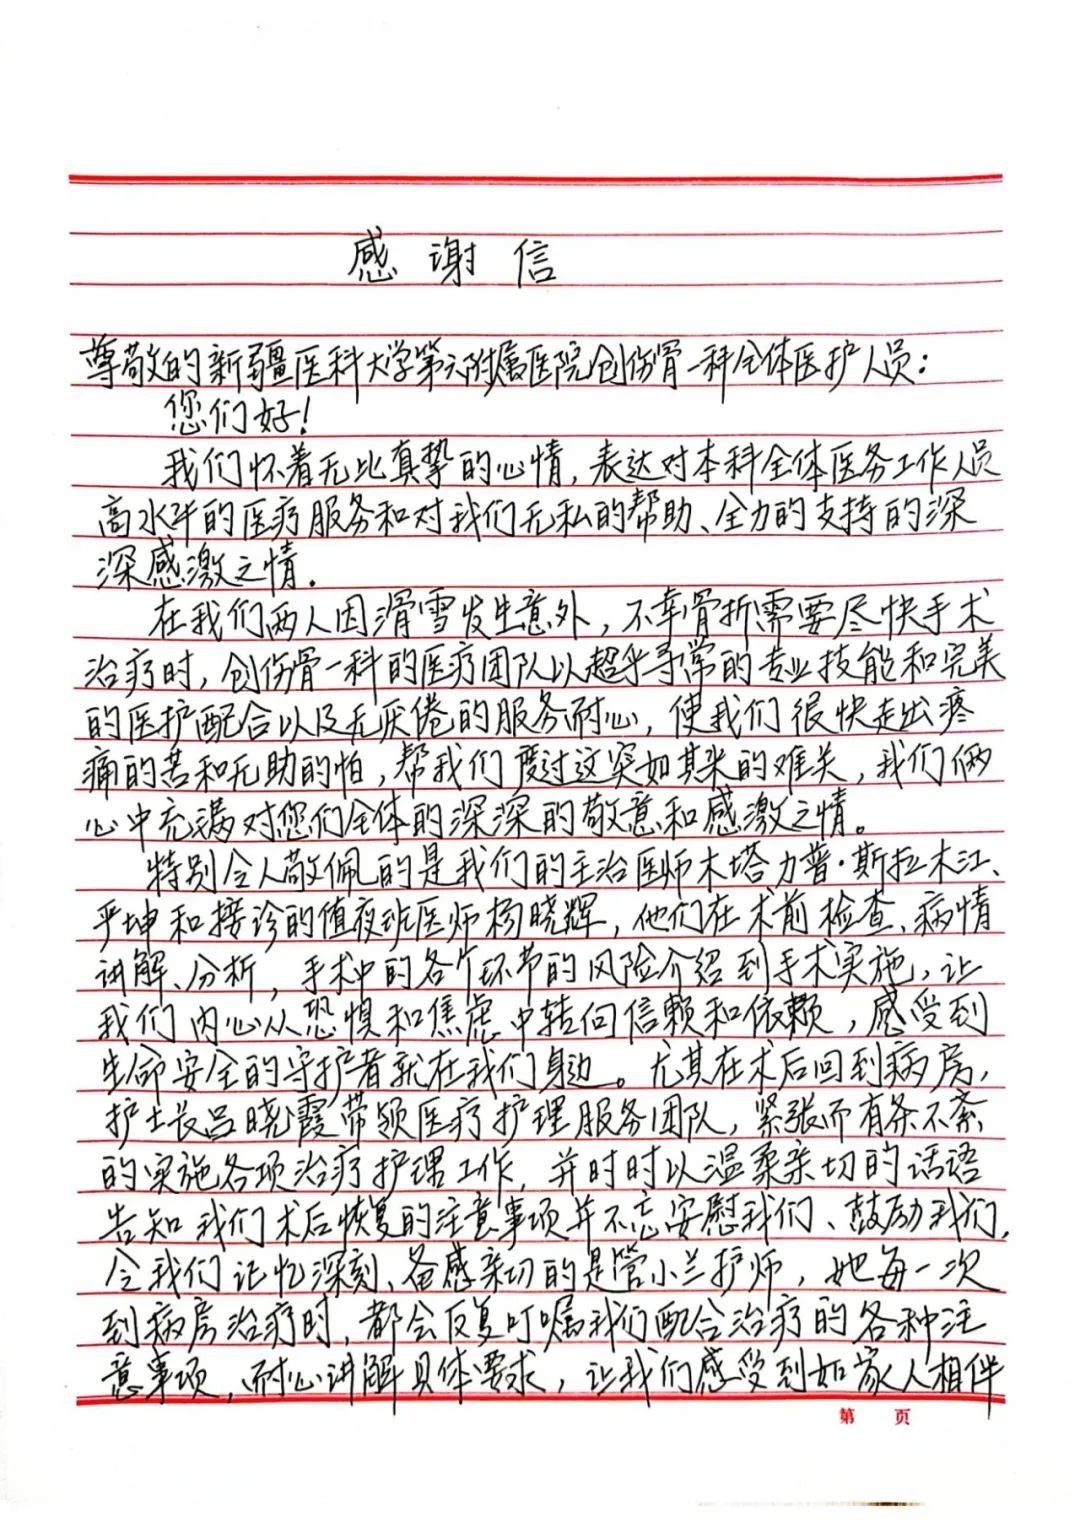 感谢信
尊敬的新疆医科大学第六附属医院创伤骨一科全体医护人员:
您们好!
我们怀着无比真挚的心情,表达对本科全体医务工作人员
高水平的医疗服务和对我们无私的帮助、全力的支持的深
深感激之情.
在我们两人因滑雪发生意外,不幸骨折需要尽快手术
治疗时,创伤骨一科的医疗团队以超乎寻常的专业技能和完美
的医护配合以及无厌倦的服务耐心,使我们很快走出疼
痛的苦和无助的怕,帮我们度过这突如其来的难关,我们俩
心中充满对您们全体的深深的敬意和感激之情。
特别令人敬佩的是我们的主治医师木塔力普·斯拉木江、
严坤和接诊的值夜班医师杨晓辉,他们在术前检查、病情
讲解、分析,手术中的各个环节的风险介绍到手术实施,让
我们内心从恐惧和焦虑中转向信赖和依赖,感受到
生命安全的守护者就在我们身边。尤其在术后回到病房,
护士长吕晓霞带领医疗护理服务团队,紧张而有条不紊
的实施各项治疗护理工作,并时时以温柔亲切的话语
告知我们术后恢复的注意事项并不忘安慰我们、鼓励我们.
令我们记忆深刻、备感亲切的是管小兰护师,她每一次
到病房治疗时,都会反复叮嘱我们配合治疗的各种注
意事项,耐心讲解具体要求,让我们感受到如家人相伴
第 页